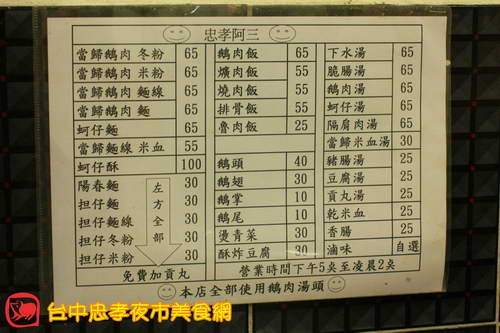 忠孝阿三
當歸鵝肉 冬粉 65
當歸鵝肉 米粉 65
當歸鵝肉 麵線 65
當歸鵝肉 麵 65
蚵仔麵 65
當歸麵線 米血 55
蚵仔酥 100
陽春麵 30
担仔麵 30
担仔麵線 30
担仔冬粉 30
担仔米粉 30
左方全部
免費加貢丸
鵝肉飯 65
爌肉飯 55
燒肉飯 55
排骨飯 55
魯肉飯 25
鵝頭 40
鵝翅 30
鵝掌 10
鵝尾 10
燙青菜 30
酥炸豆腐 30
下水湯 65
脆腸湯 65
鵝肉湯 65
蚵仔湯 65
隔肩肉湯 65
當歸米血湯 30
豬腸湯 25
豆腐湯 25
貢丸湯 25
乾米血 25
香腸 25
滷味 自選
營業時間下午5點至凌晨2點
本店全部使用鵝肉湯頭
台中忠孝夜市美食網